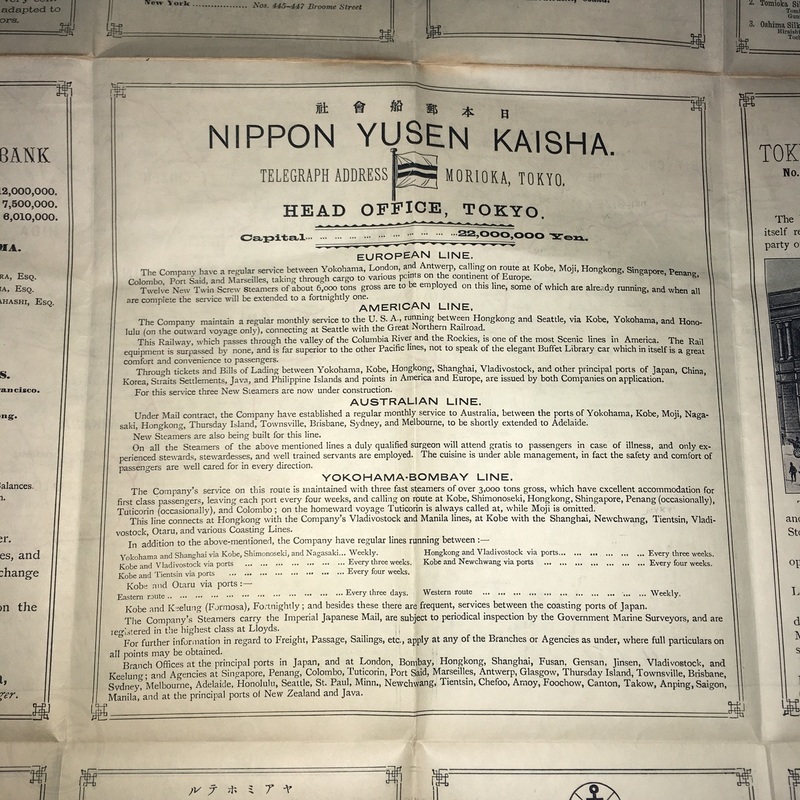 adapted to
ors.
New York ................ Nos. 445-447 Broome Street
2. Tomioka Silk
3. Oshima Silk
BANK
12,000,000.
7,500,000.
6,010,000.
MA.
RA, Esq.
A, Esq.
AHASHI, Esq.
S.
ancisco.
ng.
alances
n.
er.
es, and
change
on the
ger.
社會船郵本日
NIPPON YUSEN KAISHA.
TELEGRAPH ADDRESS MORIOKA, TOKYO.
HEAD OFFICE, TOKYO.
Capital... ... ... ... ... ... ...22,000,000 Yen.
EUROPEAN LINE.
The Company have a regular service between Yokohama, London, and Antwerp, calling on route at Kobe, Moji, Hongkong, Singapore, Penang,
Colombo, Port Said, and Marseilles, taking through cargo to various points on the continent of Europe.
Twelve New Twin Screw Steamers of about 6,000 tons gross are to be employed on this line, some of which are already running, and when all
are complete the service will be extended to a fortnightly one.
AMERICAN LINE.
The Company maintain a regular monthly service to the U. S. A., running between Hongkong and Seattle, via Kobe, Yokohama, and Hono-
lulu (on the outward voyage only), connecting at Seattle with the Great Northern Railroad.
This Railway, which passes through the valley of the Columbia River and the Rockies, is one of the most Scenic lines in America. The Rail
equipment is surpassed by none, and is far superior to the other Pacific lines, not to speak of the elegant Buffet Library car which in itself is a great
comfort and convenience to passengers.
Through tickets and Bills of Lading between Yokohama, Kobe, Hongkong, Shanghai, Vladivostock, and other principal ports of Japan, China,
Korea, Straits Settlements, Java, and Philippine Islands and points in America and Europe, are issued by both Companies on application.
For this service three New Steamers are now under construction.
AUSTRALIAN LINE.
Under Mail contract, the Company have established a regular monthly service to Australia, between the ports of Yokohama, Kobe, Moji, Naga-
saki, Hongkong, Thursday Island, Townsville, Brisbane, Sydney, and Melbourne, to be shortly extended to Adelaide.
New Steamers are also being built for this line.
On all the Steamers of the above mentioned lines a duly qualified surgeon will attend gratis to passengers in case of illness, and only ex-
perienced stewards, stewardesses, and well trained servants are employed. The cuisine is under able management, in fact the safety and comfort of
passengers are well cared for in every direction.
YOKOHAMA-BOMBAY LINE.
The Company's service on this route is maintained with three fast steamers of over 3,000 tons gross, which have excellent accommodation for
first class passengers, leaving each port every four weeks, and calling on route at Kobe, Shimonoseki, Hongkong, Shingapore, Penang (occasionally),
Tuticorin (occasionally), and Colombo; on the homeward voyage Tuticorin is always called at, while Moji is omitted.
This line connects at Hongkong with the Company's Vladivostock and Manila lines, at Kobe with the Shanghai, Newchwang, Tientsin, Vladi-
vostock, Otaru, and various Coasting Lines.
In addition to the above-mentioned, the Company have regular lines running between:—
Yokohama and Shanghai via Kobe, Shimonoseki, and Nagasaki... Weekly. Hongkong and Vladivostock via ports... ... ... ... ... ... Every three weeks.
Kobe and Vladivostock via ports ... ... ... ... ... ... Every three weeks. Kobe and Newchwang via ports ... ... ... ... ... ... Every four weeks.
Kobe and Tientsin via ports ... ... ... ... ... ... Every four weeks.
Kobe and Otaru via ports:—
Eastern route ... ... ... ... ... ... Every three days. Western route ... ... ... ... ... ... Weekly.
Kobe and Keelung (Formosa), Fortnightly; and besides these there are frequent, services between the coasting ports of Japan.
The Company's Steamers carry the Imperial Japanese Mail, are subject to periodical inspection by the Government Marine Surveyors, and are
registered in the highest class at Lloyds.
For further information in regard to Freight, Passage, Sailings, etc., apply at any of the Branches or Agencies as under, where full particulars on
all points may be obtained.
Branch Offices at the principal ports in Japan, and at London, Bombay, Hongkong, Shanghai, Fusan, Gensan, Jinsen, Vladivostock, and
Keelung; and Agencies at Singapore, Penang, Colombo, Tuticorin, Port Said, Marseilles, Antwerp, Glasgow, Thursday Island, Townsville, Brisbane,
Sydney, Melbourne, Adelaide, Honolulu, Seattle, St. Paul, Minn., Newchwang, Tientsin, Chefoo, Amoy, Foochow, Canton, Takow, Anping, Saigon,
Manila, and at the principal ports of New Zealand and Java.
TOK
No.
The
itself re
party o
ルテホミアヤ